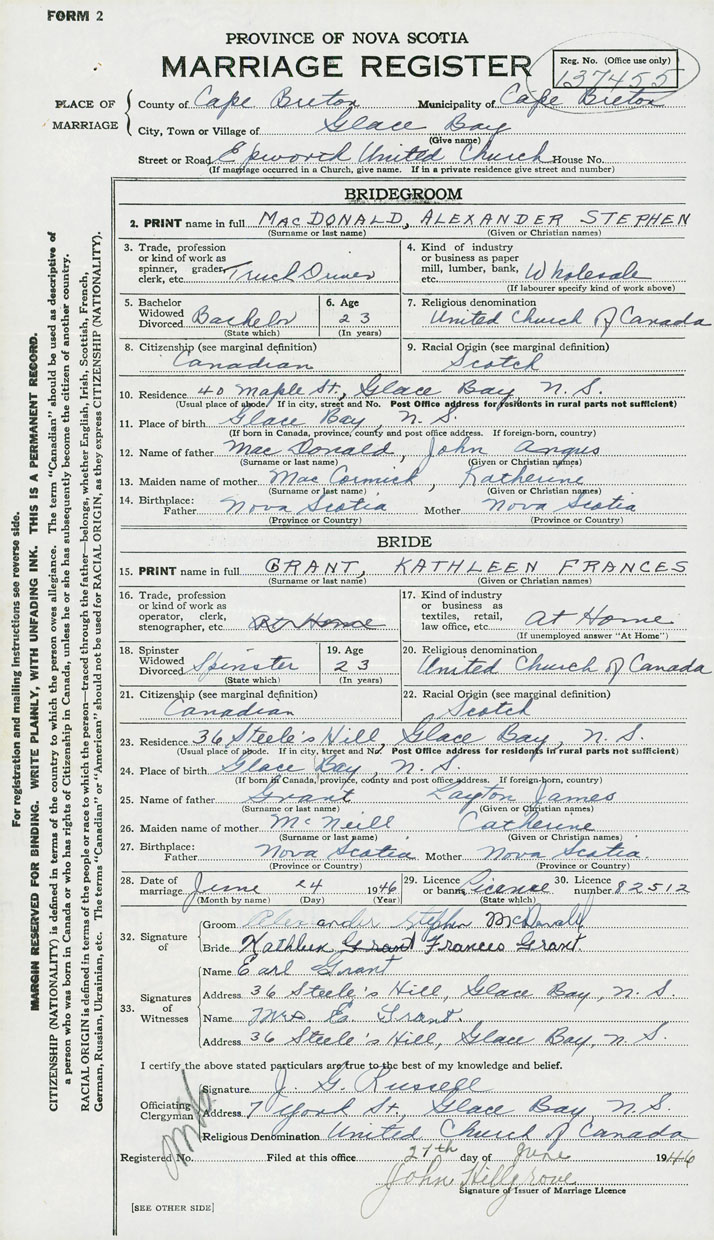 FORM 2
PROVINCE OF NOVA SCOTIA
MARRIAGE REGISTER
Reg. No. (Office use only)
137455
PLACE OF MARRIAGE
County of Cape Breton Municipality of Cape Breton
City, Town or Village of Glace Bay
(Give name)
Street or Road Epworth United Church House No.
(If marriage occurred in a Church, give name. If in a private residence give street and number)
BRIDEGROOM
2. PRINT name in full MACDONALD, ALEXANDER STEPHEN
(Surname or last name) (Given or Christian names)
3. Trade, profession or kind of work as spinner, grader, clerk, etc. Truck Driver
4. Kind of industry or business as paper mill, lumber, bank, etc. Wholesale
(If labourer specify kind of work above)
5. Bachelor Widowed Divorced Bachelor
(State which)
6. Age 23
(In years)
7. Religious denomination
United Church of Canada
8. Citizenship (see marginal definition)
Canadian
9. Racial Origin (see marginal definition)
Scotch
10. Residence 40 Maple St., Glace Bay N. S.
(Usual place of abode. If in city, street and No. Post Office address for residents in rural parts not sufficient)
11. Place of birth Glace Bay, N. S.
(If born in Canada, province, county and post office address. If foreign-born, country)
12. Name of father MacDonald, John Angus
(Surname or last name) (Given or Christian names)
13. Maiden name of mother MacCormick, Katherine
(Surname or last name) (Given or Christian names)
14. Birthplace: Father Nova Scotia Mother Nova Scotia
(Province or Country) (Province or Country)
BRIDE
15. PRINT name in full GRANT, KATHLEEN FRANCES
(Surname or last name) (Given or Christian names)
16. Trade, profession or kind of work as operator, clerk, stenographer, etc. At Home
17. Kind of industry or business as textiles, retail, law office, etc. At Home
(If unemployed answer "At Home")
18. Spinster Widowed Divorced Spinster
(State which)
19. Age 23
(In years)
20. Religious denomination
United Church of Canada
21. Citizenship (see marginal definition)
Canadian
22. Racial Origin (see marginal definition)
Scotch
23. Residence 36 Steele's Hill, Glace Bay, N. S.
(Usual place of abode. If in city, street and No. Post Office address for residents in rural parts not sufficient)
24. Place of birth Glace Bay, N. S.
(If born in Canada, province, county and post office address. If foreign-born, country)
25. Name of father Grant Layton James
(Surname or last name) (Given or Christian names)
26. Maiden name of mother McNeill Catherine
(Surname or last name) (Given or Christian names)
27. Birthplace: Father Nova Scotia Mother Nova Scotia.
(Province or Country) (Province or Country)
28. Date of marriage June 24 1946
(Month by name) (Day) (Year)
29. Licence or banns License
(State which)
30. Licence number 82512
32. Signature of
Groom Alexander Stephen McDonald
Bride Kathleen Grant Frances Grant
33. Signatures of Witnesses
Name Earl Grant
Address 36 Steele's Hill, Glace Bay, N. S.
Name Mrs. E. Grant.
Address 36 Steele's Hill, Glace Bay, N. S.
I certify the above stated particulars are true to the best of my knowledge and belief.
Officiating Clergyman
Signature J. G. Russell
Address 7 St., Glace Bay, N. S.
Religious Denomination United Church of Canada
Registered No. Filed at this office 27th day of June 1946
John Hillgrove
Signature of Issuer of Marriage Licence
[SEE OTHER SIDE]
For registration and mailing instructions see reverse side.
MARGIN RESERVED FOR BINDING. WRITE PLAINLY, WITH UNFADING INK. THIS IS A PERMANENT RECORD.
CITIZENSHIP (NATIONALITY) is defined in terms of the country to which the person owes allegiance. The term "Canadian" should be used as descriptive of
a person who was born in Canada or who has rights of Citizenship in Canada, unless he or she has subsequently become the citizen of another country.
RACIAL ORIGIN is defined in terms of the people or race to which the person—traced through the father—belongs, whether English, Irish, Scottish, French,
German, Russian, Ukrainian, etc. The terms "Canadian" or "American" should not be used for RACIAL ORIGIN, as they express CITIZENSHIP (NATIONALITY).